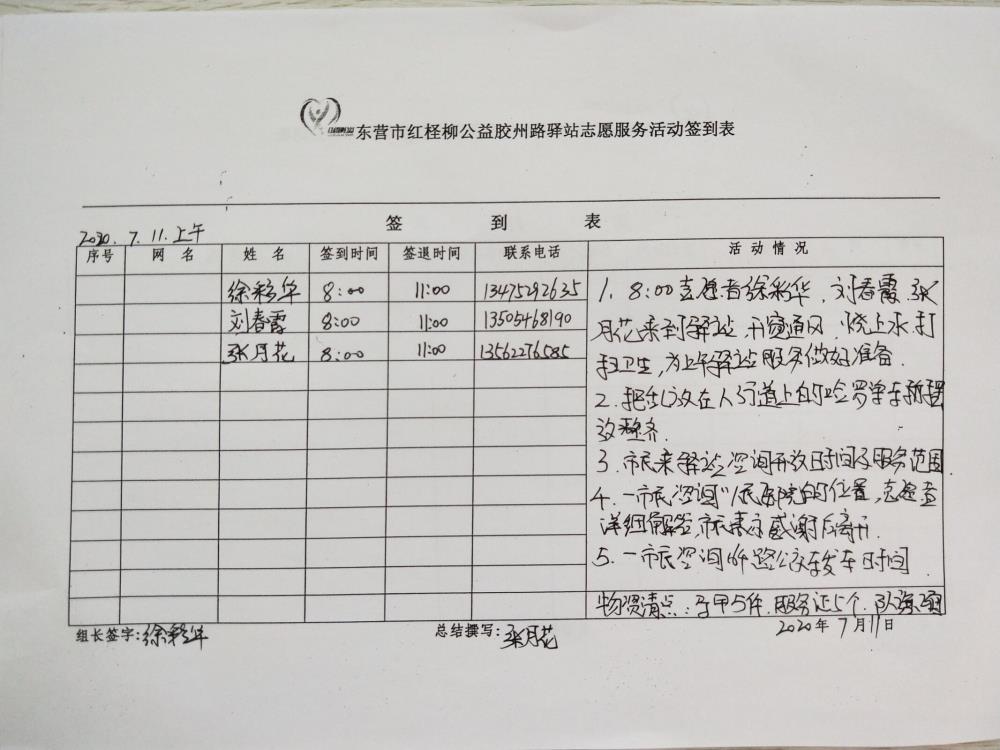 东营市红柽柳公益胶州路驿站志愿服务活动签到表
签 到 表
2020.7.11.上午
序号 网 名 姓 名 签到时间 签退时间 联系电话 活动情况
徐彩华 8:00 11:00 13475292635
刘春霞 8:00 11:00 13505468190
张月花 8:00 11:00 13562276585
1. 8:00志愿者徐彩华，刘春霞，张
月花来到驿站，开窗通风，烧上水，打
扫卫生，为上午驿站服务做好准备．
2．把乱放在人行道上的 单车 摆
放整齐．
3．市民来驿站咨询开放时间及服务范围
4．一市民咨询"人民医院的位置，志愿者
详细解答，市民表示感谢后离开．
5．一市民咨询64路公交车发车时间
物资清点：马甲5件．服务证5个．队旗
组长签字：徐彩华 总结撰写：张月花 2020年7月11日